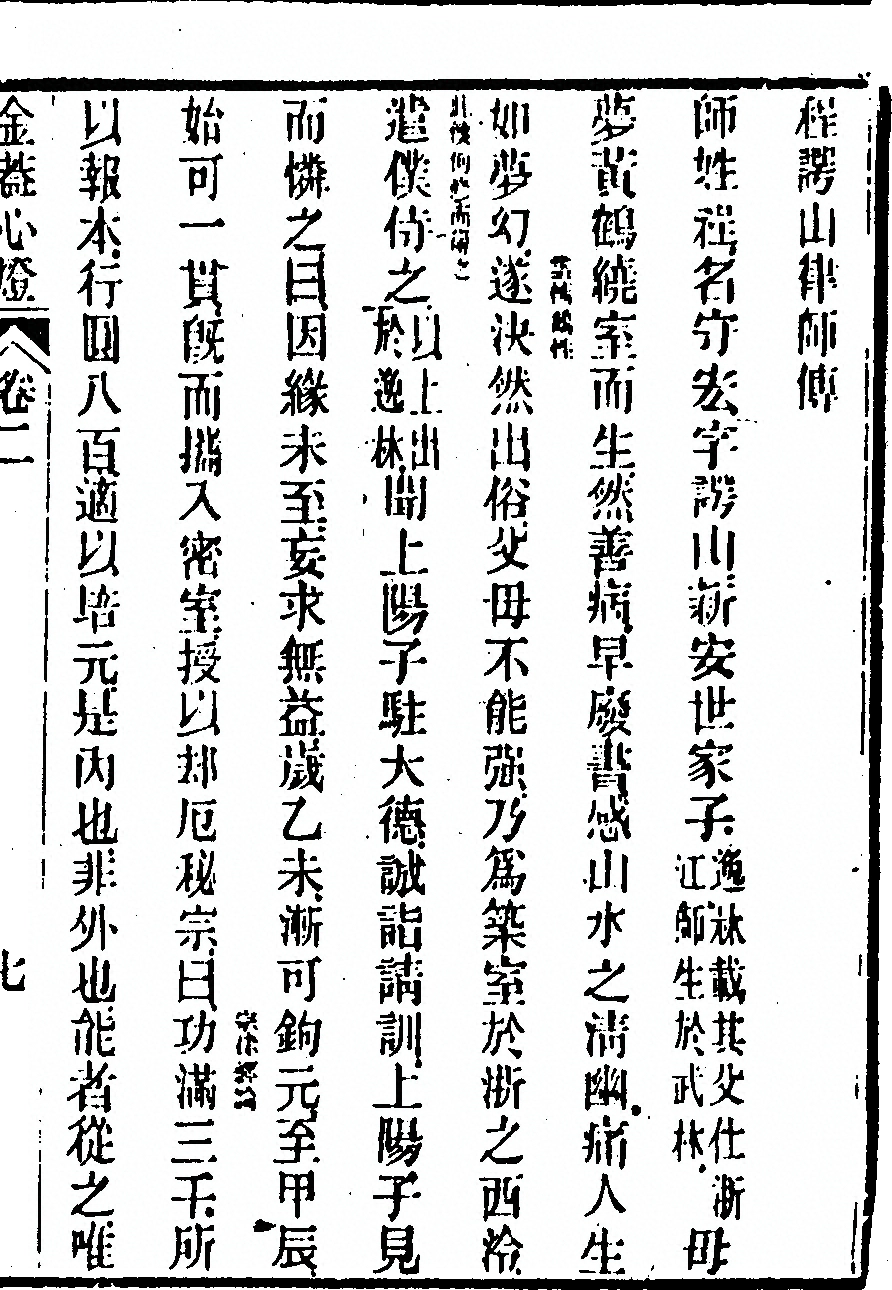 程諤山律師傳
師姓程名守宏字諤山新安世家子逸林載其父仕浙江師生於武林母
夢黃鶴繞室而生然善病早廢書感山水之清幽痛人生
如夢幻遂決然出俗父母不能强乃爲築室於浙之西泠
遣僕侍之以上出於逸林聞上陽子駐大德誠詣請訓上陽子見
而憐之曰因緣未至妄求無益歲乙未漸可鉤元至甲辰
始可一貫既而攜入密室授以却厄秘宗曰功滿三千所
以報本行圓八百適以培元是內也非外也能者從之唯
金蓋心燈 卷二 七